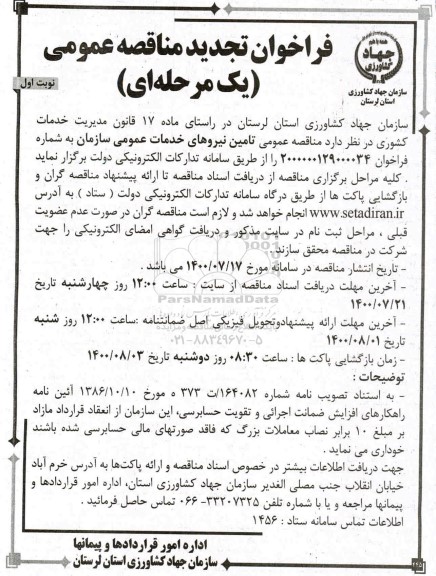 همه با هم
جهاد
کشاورزی
سازمان جهاد کشاورزی
استان لرستان
فراخوان تجدید مناقصه عمومی
(یک مرحله‌ای)
نوبت اول
سازمان جهاد کشاورزی استان لرستان در راستای ماده ۱۷ قانون مدیریت خدمات
کشوری در نظر دارد مناقصه عمومی تامین نیروهای خدمات عمومی سازمان به شماره
فراخوان ۲۰۰۰۰۰۱۲۹۰۰۰۰۳۴ را از طریق سامانه تدارکات الکترونیکی دولت برگزار نماید
. کلیه مراحل برگزاری مناقصه از دریافت اسناد مناقصه تا ارائه پیشنهاد مناقصه گران و
بازگشایی پاکت ها از طریق درگاه سامانه تدارکات الکترونیکی دولت ( ستاد ) به آدرس
www.setadiran.ir انجام خواهد شد و لازم است مناقصه گران در صورت عدم عضویت
قبلی ، مراحل ثبت نام در سایت مذکور و دریافت گواهی امضای الکترونیکی را جهت
شرکت در مناقصه محقق سازند.
- تاریخ انتشار مناقصه در سامانه مورخ ۱۴۰۰/۰۷/۱۷ می باشد .
- آخرین مهلت دریافت اسناد مناقصه از سایت : ساعت ۱۲:۰۰ روز چهارشنبه تاریخ
۱۴۰۰/۰۷/۲۱
ParsNamadData
- آخرین مهلت ارائه پیشنهادوتحویل فیزیکی اصل ضمانتنامه :ساعت ۱۲:۰۰ روز شنبه
تاریخ ۱۴۰۰/۰۸/۰۱
۰۲۱-۸۸۳۴۹۶۷۰-۵
- زمان بازگشایی پاکت ها : ساعت ۰۸:۳۰ روز دوشنبه تاریخ ۱۴۰۰/۰۸/۰۳
توضیحات :
- به استناد تصویب نامه شماره ۱۶۴۰۸۲/ت ۳۷۳ ه مورخ ۱۳۸۶/۱۰/۱۰ آئین نامه
راهکارهای افزایش ضمانت اجرائی و تقویت حسابرسی، این سازمان از انعقاد قرارداد مازاد
بر مبلغ ۱۰ برابر نصاب معاملات بزرگ که فاقد صورتهای مالی حسابرسی شده باشند
خوداری می نماید .
جهت دریافت اطلاعات بیشتر در خصوص اسناد مناقصه و ارائه پاکت‌ها به آدرس خرم آباد
خیابان انقلاب جنب مصلی الغدیر سازمان جهاد کشاورزی استان، اداره امور قراردادها و
پیمانها مراجعه و یا با شماره تلفن ۳۳۲۰۷۳۲۵- ۰۶۶ تماس حاصل فرمائید .
اطلاعات تماس سامانه ستاد : ۱۴۵۶
اداره امور قراردادها و پیمانها
سازمان جهاد کشاورزی استان لرستان